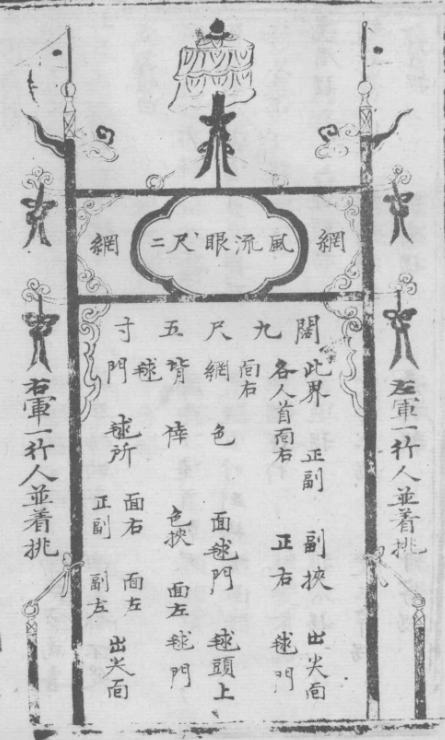 網 風流眼尺二 網
闊九尺五寸
左軍一行人並着挑
此界 正副 副挾 出尖面
各人首面右 正右 毬門
面右
網色 面毬門 毬頭上
背倖 色挾 面左毬門
毬門
毬所 面右 面左 出尖面
正副 副左
右軍一行人並着挑